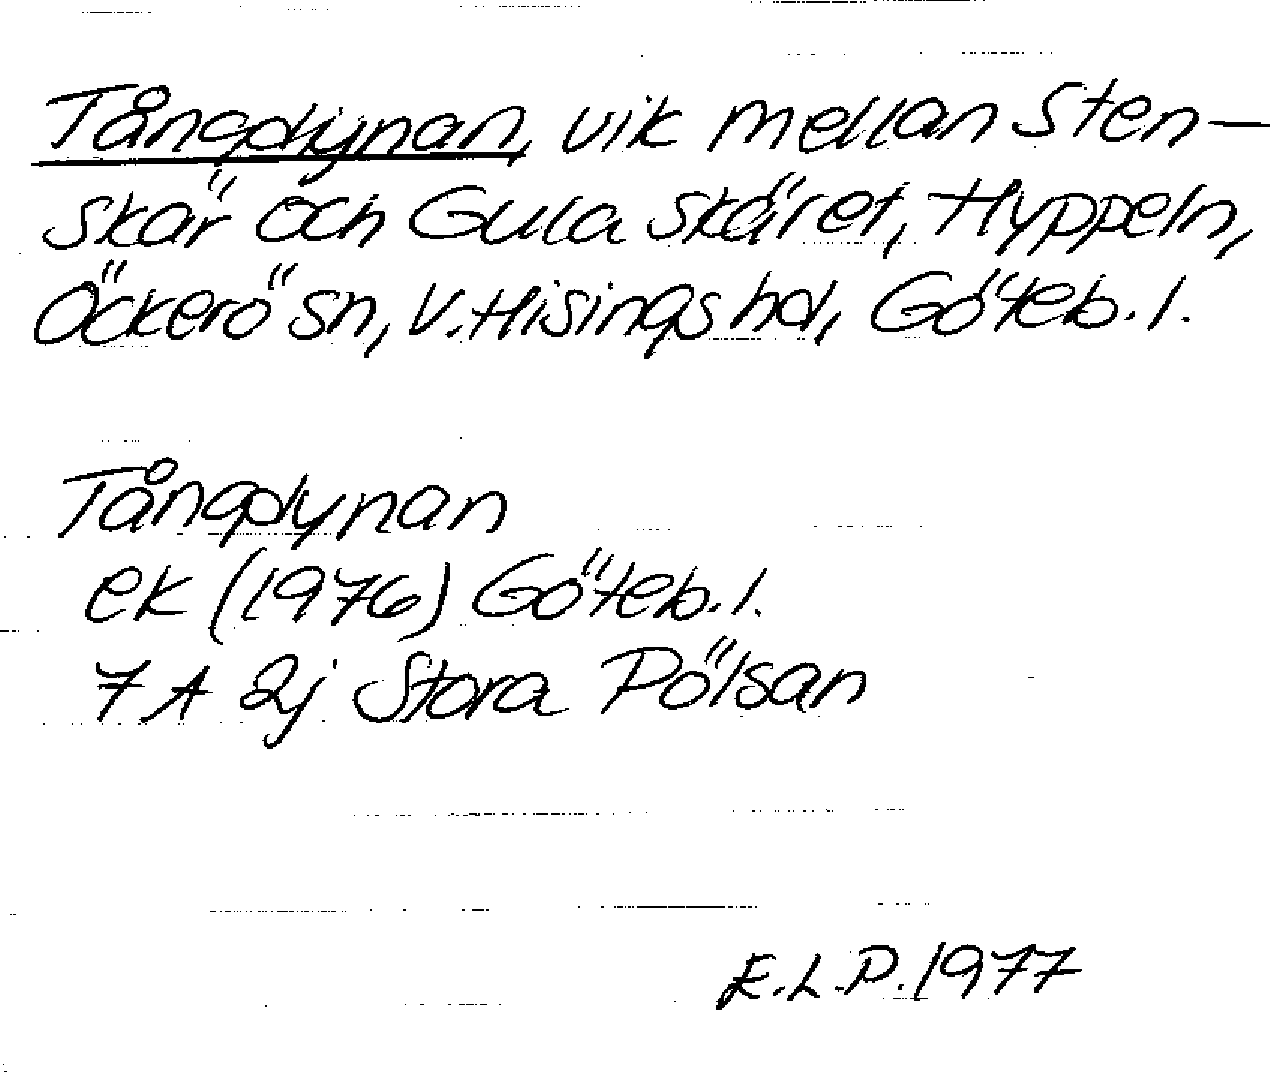 Tångdynan, vik mellan Sten-
skär och Gula skäret, Hyppeln,
Öckerö sn, V. Hisings hd, Göteb. l.
Tångdynan
ek (1976) Göteb. l.
7 A 2j Stora Pölsan
E.L.P. 1977